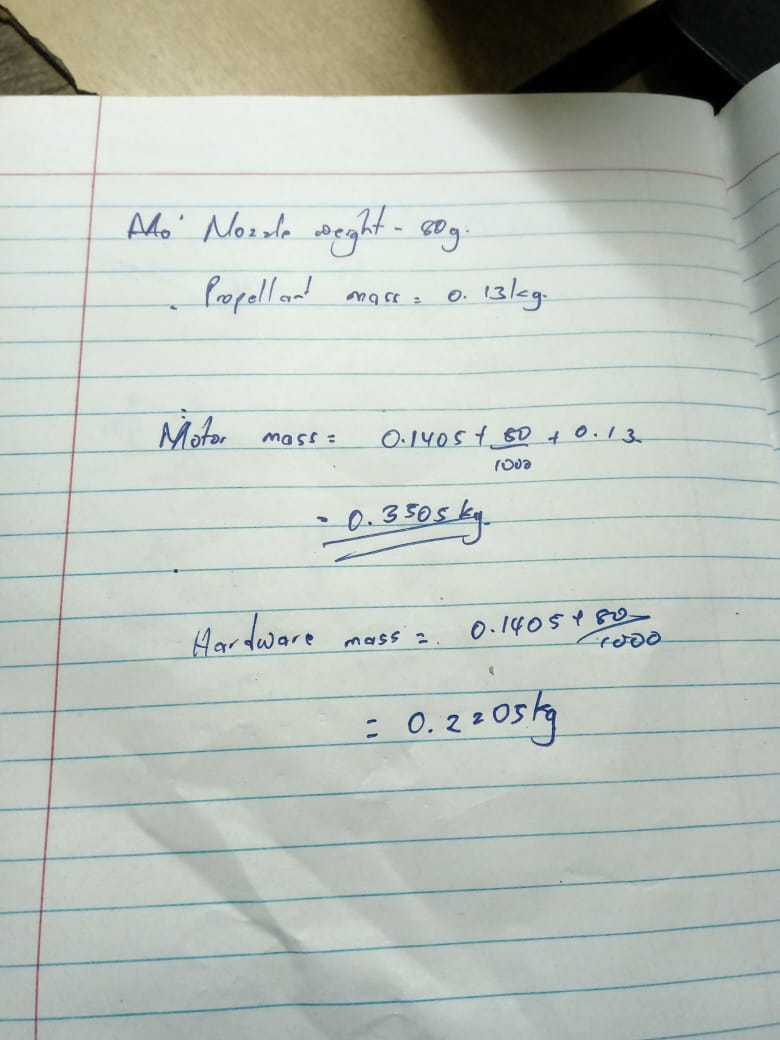 Mo: Nozzle weight - 80g.
. Propellant mass = 0.13kg.
Motor mass = 0.1405 + 80/1000 + 0.13
= 0.3505kg.
Hardware mass = 0.1405 + 80/1000
= 0.2205kg